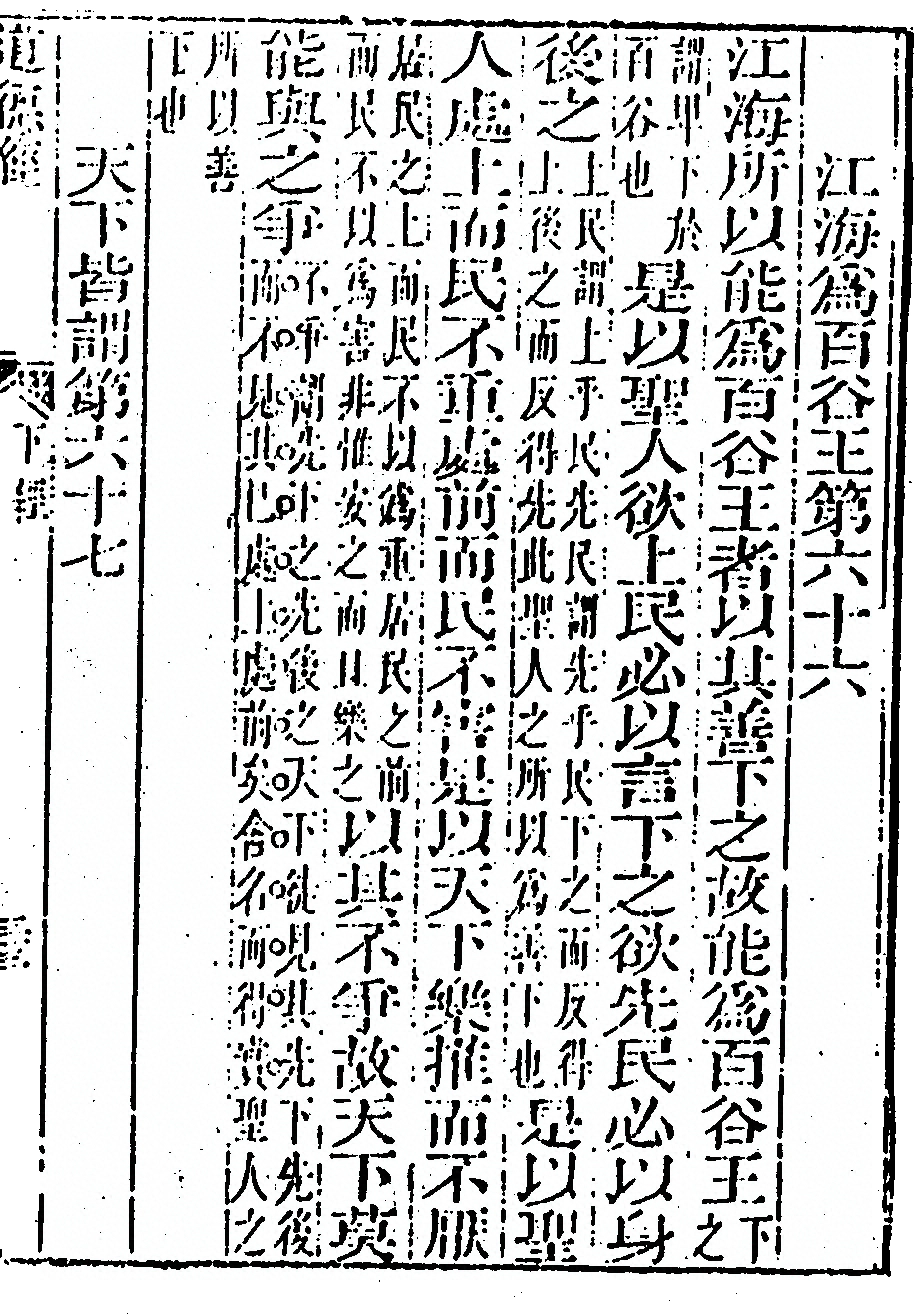 江海爲百谷王第六十六
江海所以能爲百谷王者以其善下之故能爲百谷王下
之
謂卑下於
百谷也
是以聖人欲上民必以言下之欲先民必以身
後之
上民謂上乎民先民謂先乎民下之而反得
上後之而反得先此聖人之所以爲善下也
是以聖
人處上而民不重處前而民不害是以天下樂推而不厭
居民之上而民不以爲重居民之前
而民不以爲害非惟安之而且樂之
以其不爭故天下莫
能與之爭
不爭謂先下之先後之天下徒見其先下先後
而不見其已處上處前矣舍名而得實聖人之
所以善
下也
天下皆謂第六十七
道德經
下篇